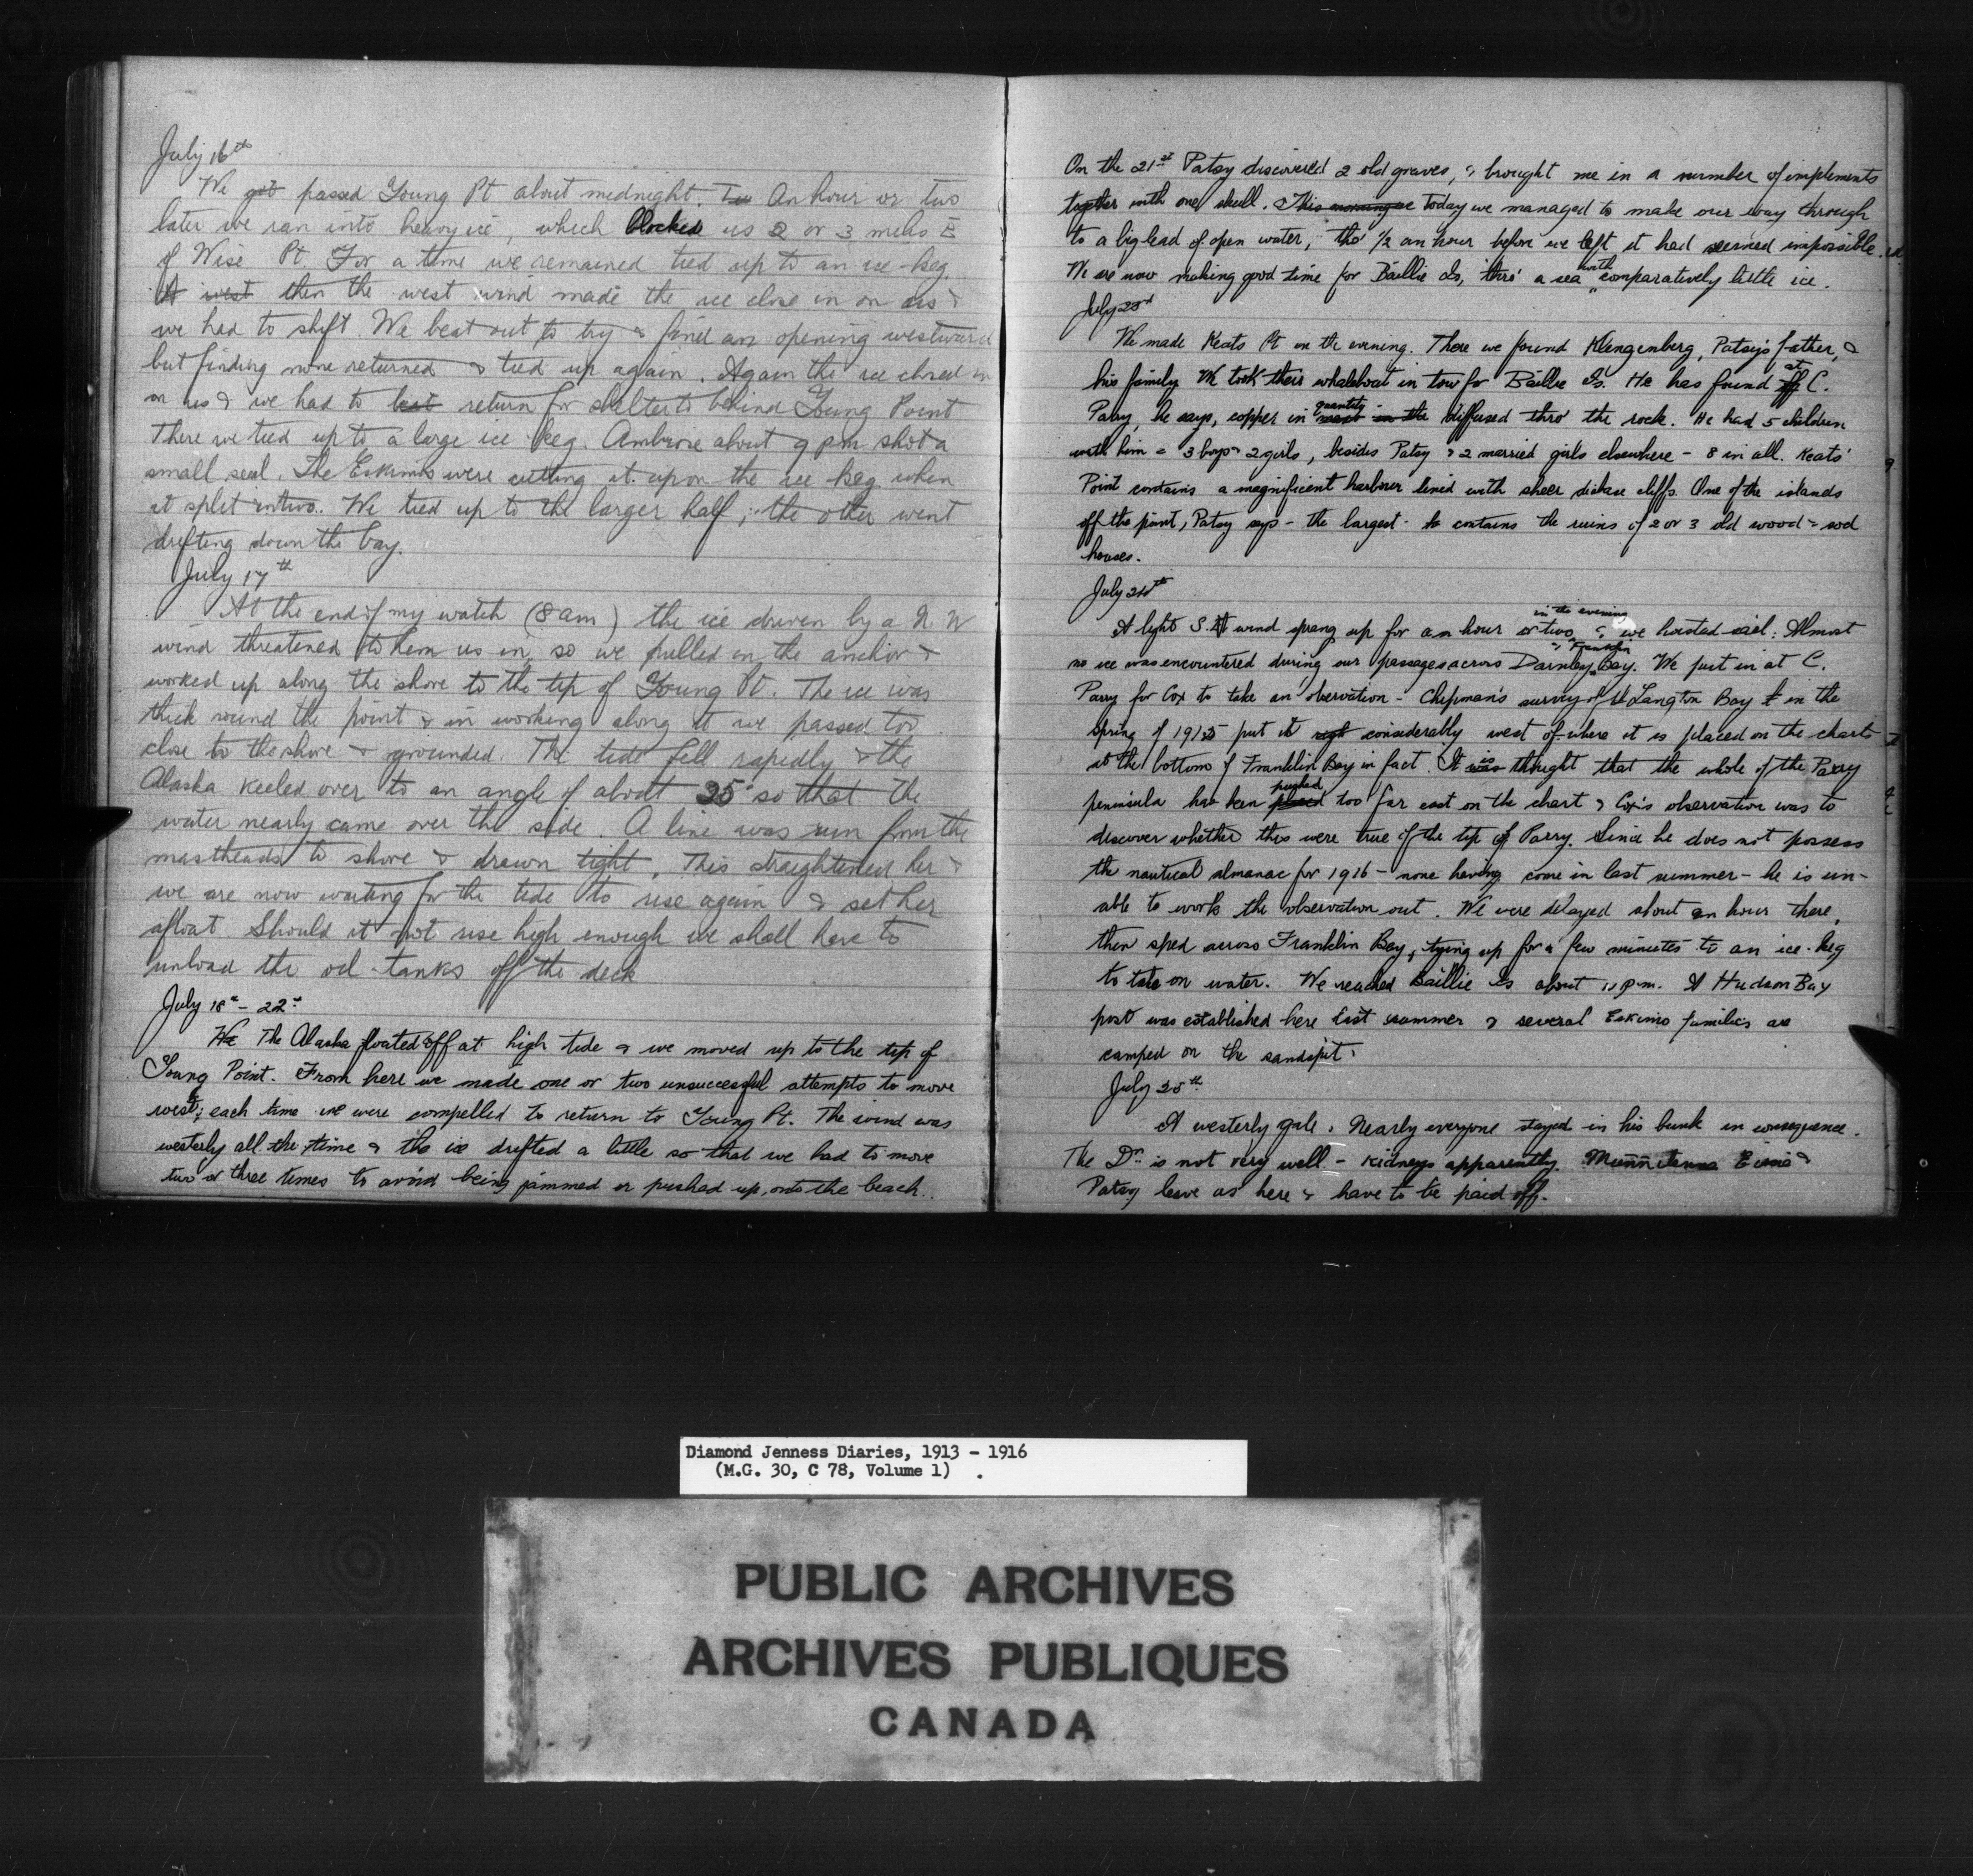 July 16th
We got passed Young Pt about midnight. Tw An hour or two
later we ran into heavy ice, which blocked us 2 or 3 miles E
of Wise Pt For a time we remained tied up to an ice-keg
west then the west wind made the ice close in on us &
we had to shift. We beat out to try & find an opening westward
but finding none returned & tied up again. Again the ice closed in
on us & we had to beat return for shelter to behind Young Point
There we tied up to a large ice keg. Ambrose about 9 pm shot a
small seal. The Eskimos were cutting it up on the ice keg when
it split in two. We tied up to the larger half; the other went
drifting down the bay.
July 17th
At the end of my watch (8 am) the ice driven by a N W
wind threatened to hem us in, so we pulled in the anchor &
worked up along the shore to the tip of Young Pt. The ice was
thick round the point & in working along it we passed too
close to the shore & grounded. The tide fell rapidly & the
Alaska keeled over to an angle of about 35° so that the
water nearly came over the side. A line was run from the
mastheads to shore & drawn tight. This straightened her &
we are now waiting for the tide to rise again & set her
afloat. Should it not rise high enough we shall have to
unload the oil-tanks off the deck
July 18th - 22nd
We The Alaska floated off at high tide & we moved up to the tip of
Young Point. From here we made one or two unsuccessful attempts to move
west; each time we were compelled to return to Young Pt. The wind was
westerly all the time & the ice drifted a little so that we had to move
two or three times to avoid being jammed or pushed up onto the beach.
On the 21st Patsy discovered 2 old graves, & brought me in a number of implements
together with one skull. This morning we today we managed to make our way through
to a big lead of open water, tho' ½ an hour before we left it had seemed impossible.
We are now making good time for Baillie Is, thro' a sea with comparatively little ice.
July 23rd
We made Keats Pt in the evening. There we found Klengenberg, Patsy's father, &
his family. We took their whaleboat in tow for Baillie Is. He has found off at C.
Parry, he says, copper in quantity in the diffused thro' the rock. He had 5 children
with him = 3 boys & 2 girls, besides Patsy & 2 married girls elsewhere - 8 in all. Keats'
Point contains a magnificent harbour lined with sheer diabase cliffs. One of the islands
off the point, Patsy says - the largest - contains the ruins of 2 or 3 old wood & sod
houses.
July 24th
A light S.E wind sprang up for an hour or two in the evening & we hoisted sail. Almost
no ice was encountered during our passages across Darnley & Franklin Bay. We put in at C.
Parry for Cox to take an observation - Chipman's survey of Langton Bay in the
spring of 1915 put it considerably west of where it is placed on the charts
at the bottom of Franklin Bay in fact. It was is thought that the whole of the Parry
peninsula has been placed pushed too far east on the chart & Cox's observation was to
discover whether this were true of the tip of Parry. Since he does not possess
the nautical almanac for 1916 - none having come in last summer - he is un-
able to work the observation out. We were delayed about an hour there,
then sped across Franklin Bay, tying up for a few minutes to an ice-keg
to take on water. We reached Baillie Is about 11 p.m. A Hudson Bay
post was established here last summer & several Eskimo families are
camped on the sandspit.
July 25th
A westerly gale. Nearly everyone stayed in his bunk in consequence.
The Dr. is not very well - kidneys apparently. &
Patsy leave us here & have to be paid off.
Diamond Jenness Diaries, 1913 - 1916
(M.G. 30, C 78, Volume 1)
PUBLIC ARCHIVES
ARCHIVES PUBLIQUES
CANADA